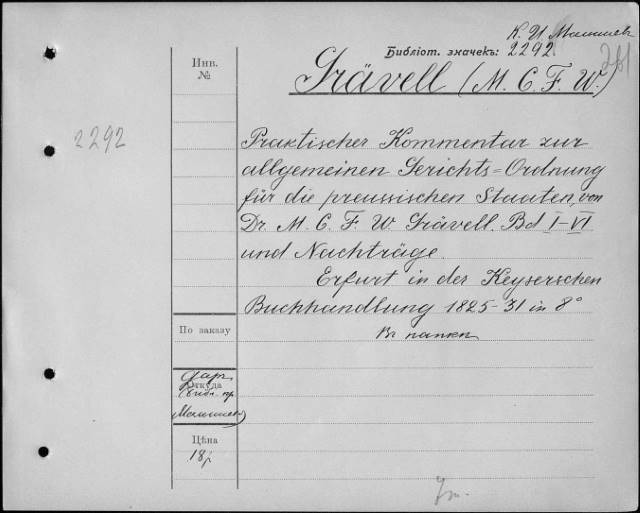 К. И. Малышев
Библіот. значекъ: 2292
261
Инв.
№
2292
Grävell (M. C. F. W.)
Praktischer Kommentar zur
allgemeinen Gerichts=Ordnung
für die preussischen Staaten, von
Dr. M. C. F. W. Grävell. Bd I–VI
und Nachträge.
Erfurt in der Keyserschen
Buchhandlung 1825-31 in 8°
Въ папкѣ
По заказу
Даръ
Откуда
Библ. пр.
Малышев
Цѣна
18 р.
7 т.